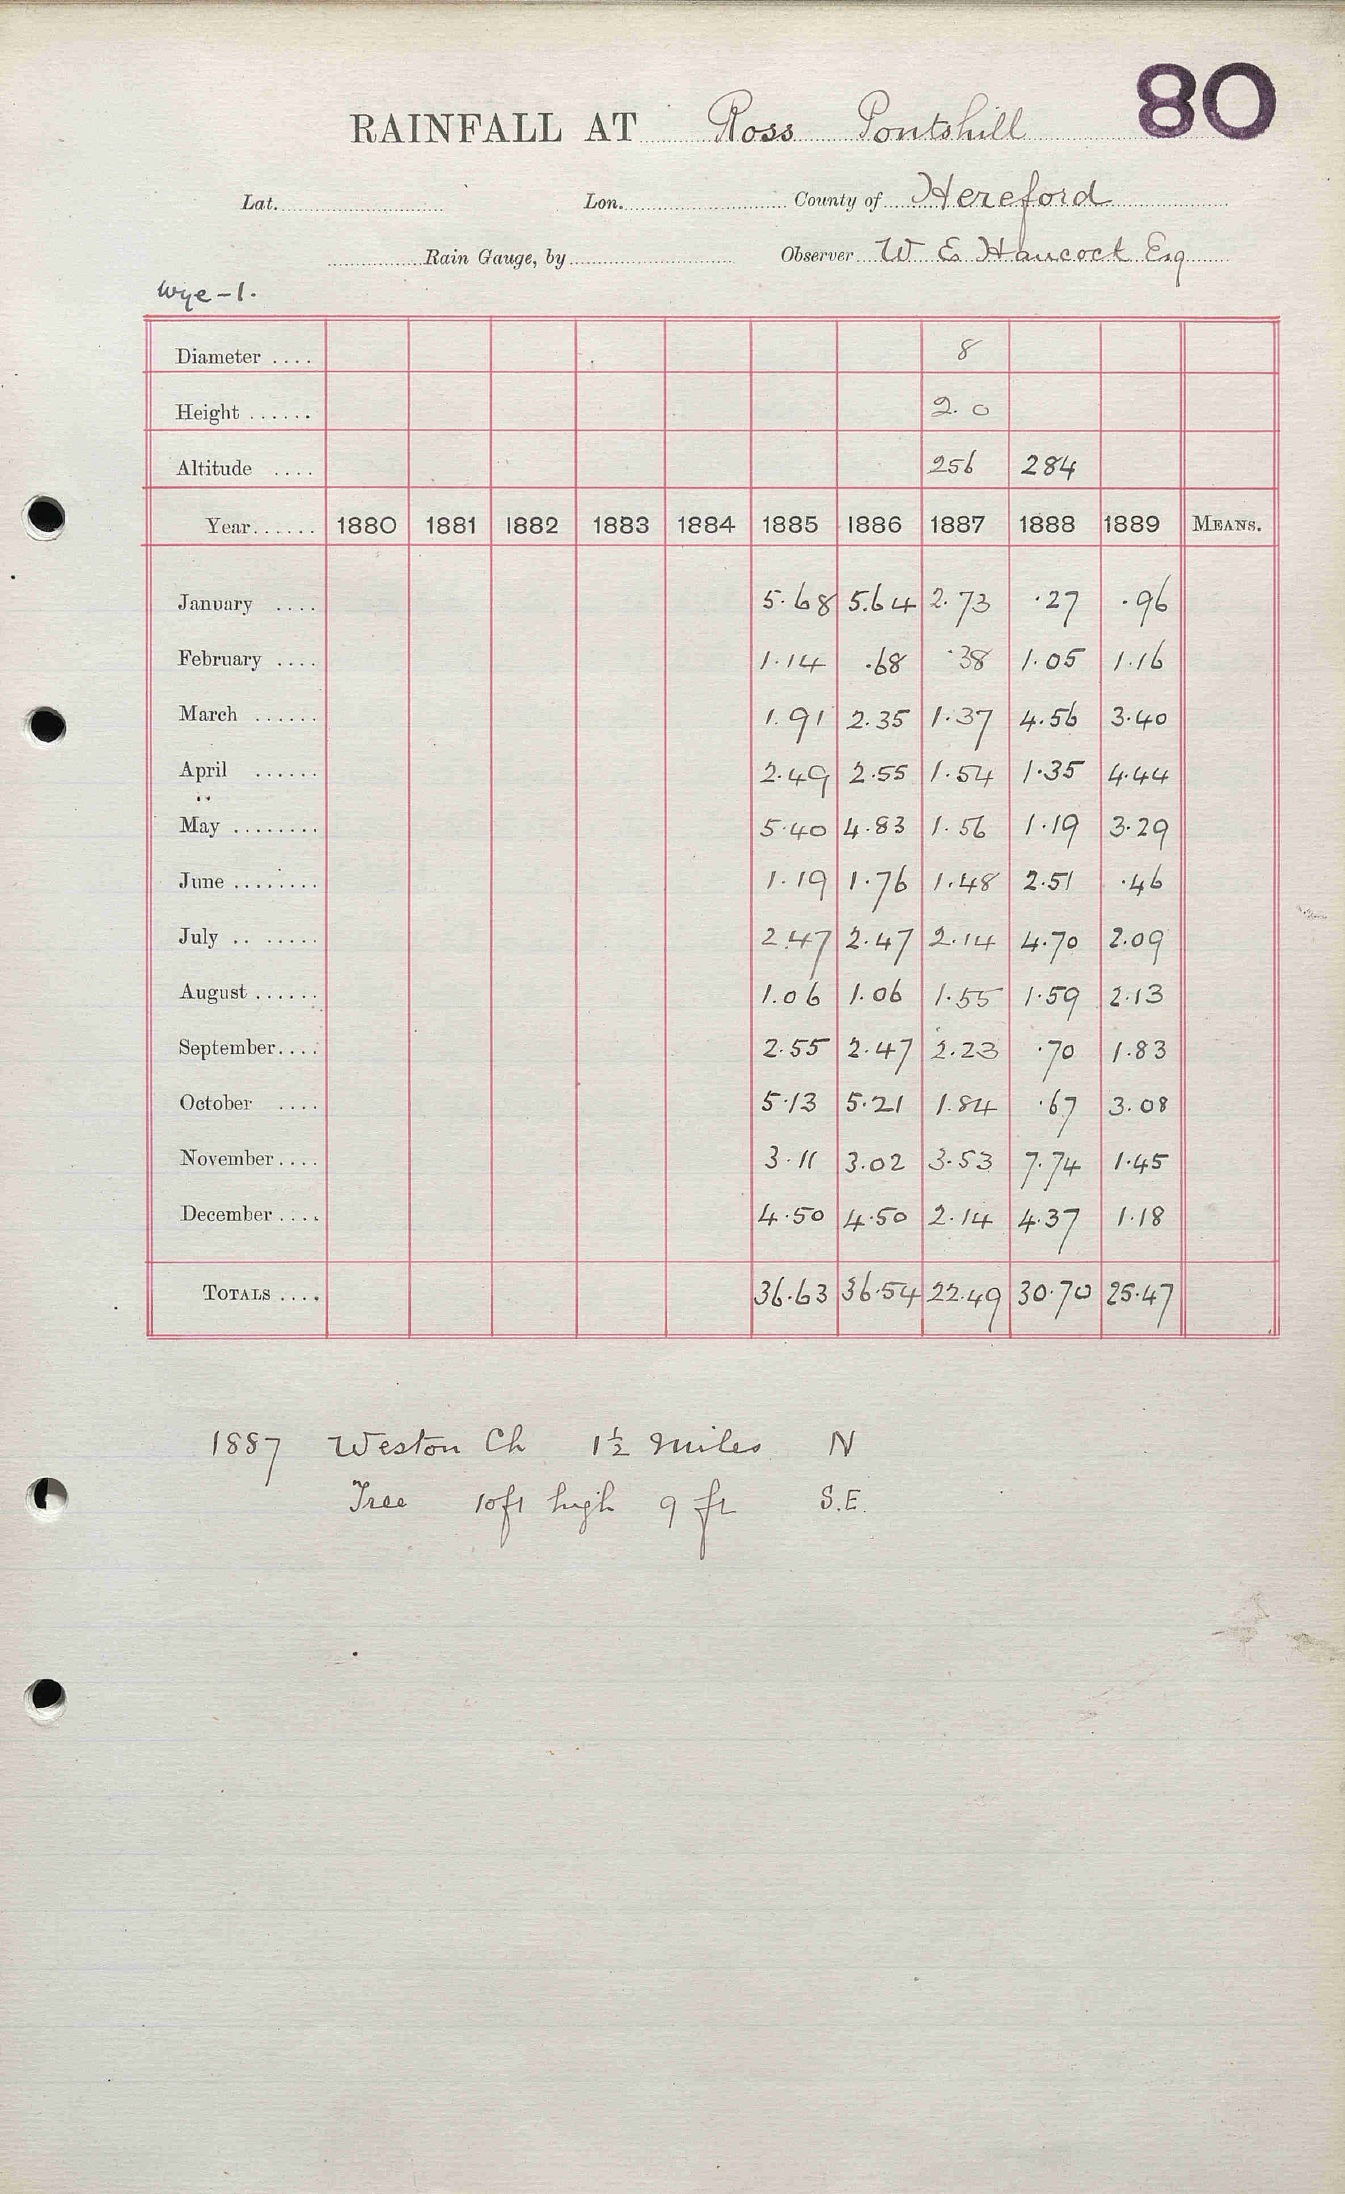 80
RAINFALL AT Ross Pontshill
Lat. Lon. County of Hereford
Rain Gauge, by Observer W E Hancock Esq
Wye-1.
Diameter .... 8
Height ...... 2.0
Altitude .... 256 284
Year...... 1880 1881 1882 1883 1884 1885 1886 1887 1888 1889 MEANS.
January .... 5.68 5.64 2.73 .27 .96
February .... 1.14 .68 .38 1.05 1.16
March ...... 1.91 2.35 1.37 4.56 3.40
April ...... 2.49 2.55 1.54 1.35 4.44
May ........ 5.40 4.83 1.56 1.19 3.29
June ........ 1.19 1.76 1.48 2.51 .46
July .. ..... 2.47 2.47 2.14 4.70 2.09
August ...... 1.06 1.06 1.55 1.59 2.13
September.... 2.55 2.47 2.23 .70 1.83
October .... 5.13 5.21 1.84 .67 3.08
November.... 3.11 3.02 3.53 7.74 1.45
December .... 4.50 4.50 2.14 4.37 1.18
TOTALS .... 36.63 36.54 22.49 30.70 25.47
1887 Weston Ch 1½ Miles N
Tree 10ft high 9 ft S.E.